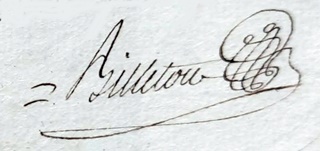 = Billetou